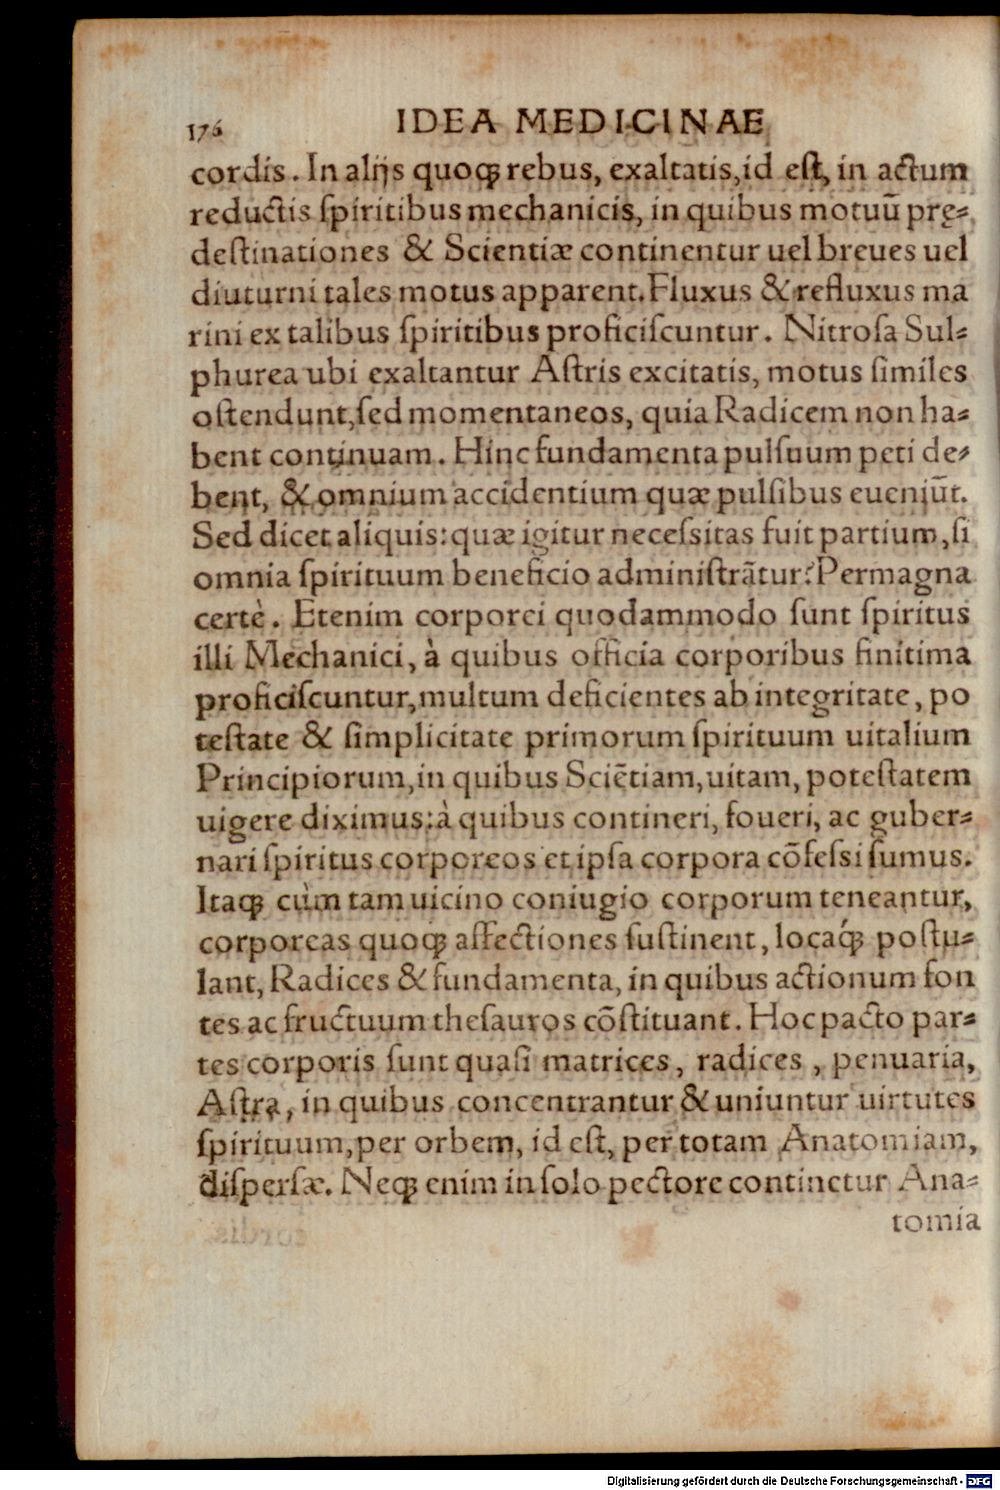 176 IDEA MEDICINAE
cordis. In alijs quoqꝫ rebus, exaltatis, id eſt, in actum
reductis ſpiritibus mechanicis, in quibus motuũ prę-
deſtinationes & Scientiæ continentur uel breues uel
diuturni tales motus apparent. Fluxus & refluxus ma
rini ex talibus ſpiritibus proficiſcuntur. Nitroſa Sul-
phurea ubi exaltantur Aſtris excitatis, motus ſimiles
oſtendunt, ſed momentaneos, quia Radicem non ha-
bent continuam. Hinc fundamenta pulſuum peti de-
bent, & omnium accidentium quæ pulſibus eueniũt.
Sed dicet aliquis: quæ igitur neceſsitas fuit partium, ſi
omnia ſpirituum beneficio adminiſtrãtur? Permagna
certè. Etenim corporei quodammodo ſunt ſpiritus
illi Mechanici, à quibus officia corporibus finitima
proficiſcuntur, multum deficientes ab integritate, po
teſtate & ſimplicitate primorum ſpirituum uitalium
Principiorum, in quibus Sciẽtiam, uitam, poteſtatem
uigere diximus: à quibus contineri, foueri, ac guber-
nari ſpiritus corporeos et ipſa corpora cõfeſsi ſumus.
Itaqꝫ cùm tam uicino coniugio corporum teneantur,
corporeas quoqꝫ affectiones ſuſtinent, locaq́ꝫ poſtu-
lant, Radices & fundamenta, in quibus actionum fon
tes ac fructuum theſauros cõſtituant. Hoc pacto par-
tes corporis ſunt quaſi matrices, radices, penuaria,
Aſtra, in quibus concentrantur & uniuntur uirtutes
ſpirituum, per orbem, id eſt, per totam Anatomiam,
diſperſæ. Neqꝫ enim in ſolo pectore continetur Ana-
tomia
Digitalisierung gefördert durch die Deutsche Forschungsgemeinschaft - DFG